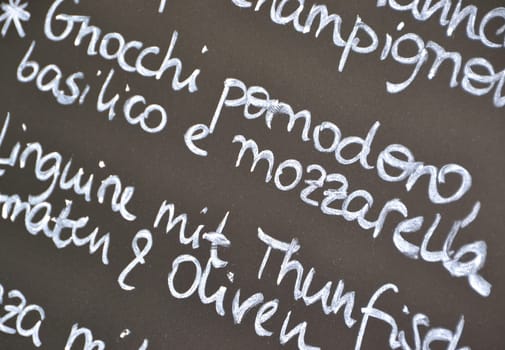 Champignon
* Gnocchi pomodoro
basilico e mozzarella
Linguine mit Thunfisch
Tomaten & Oliven